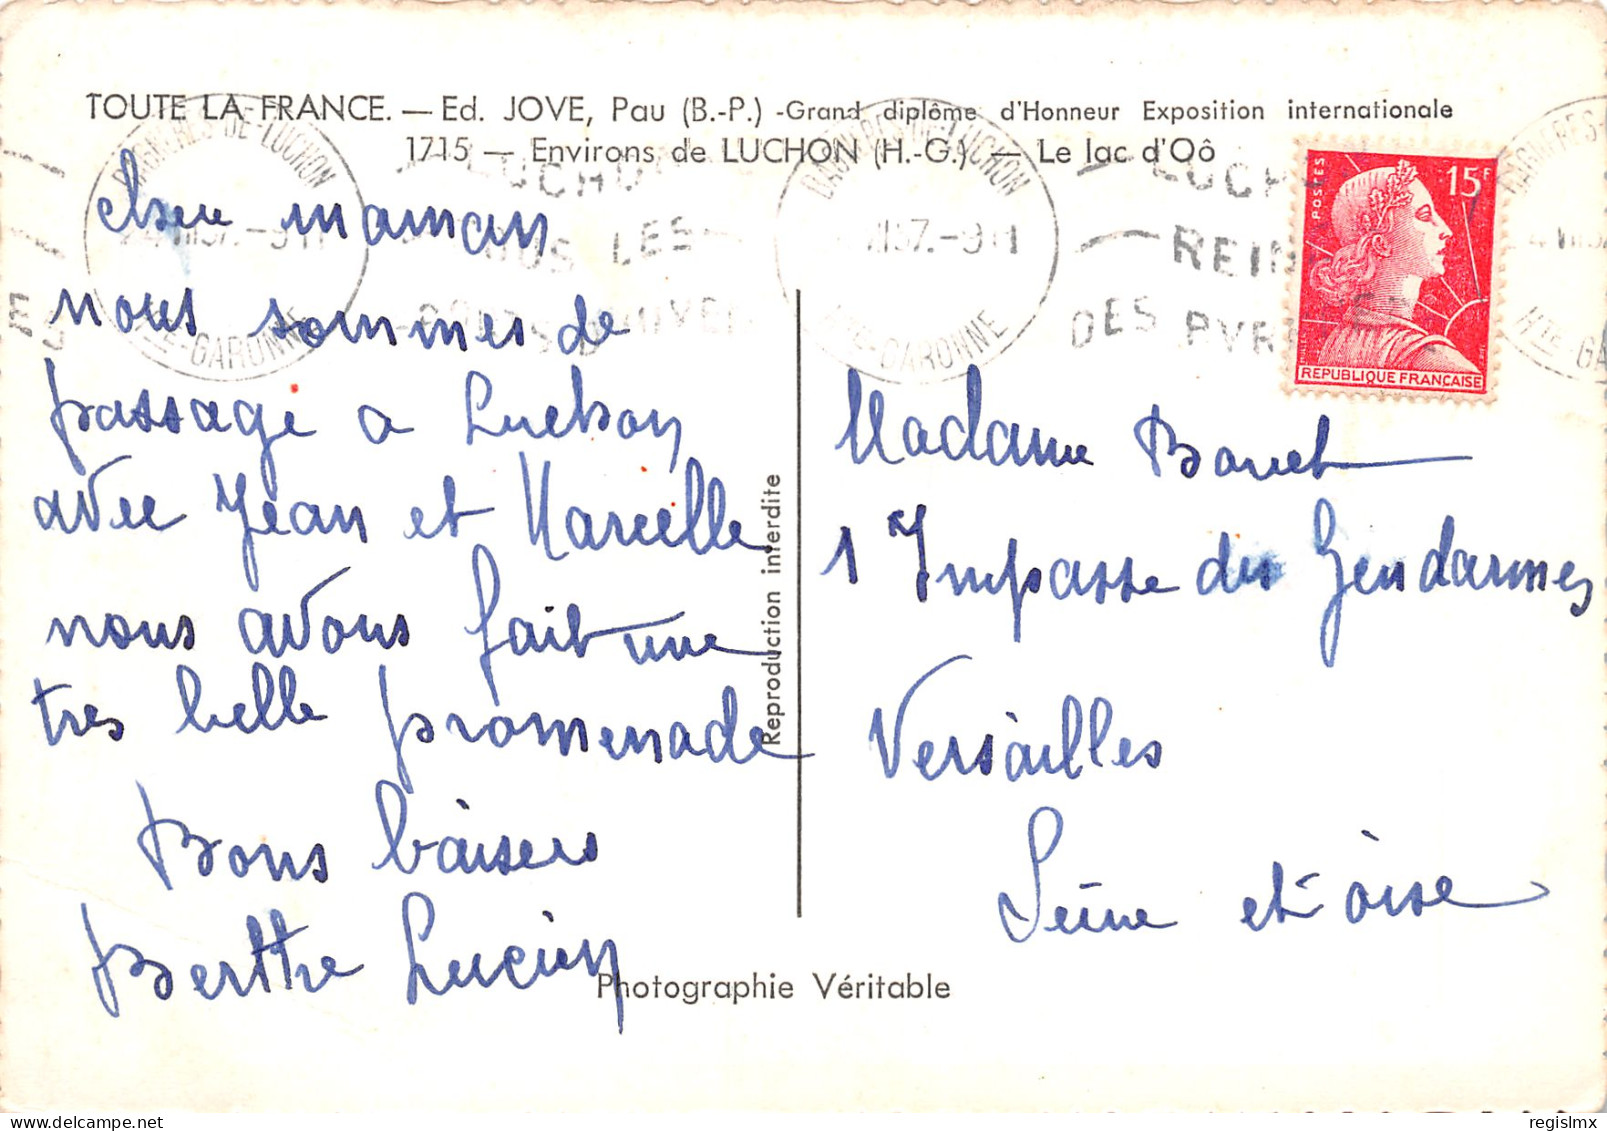 TOUTE LA FRANCE. — Ed. JOVE, Pau (B.-P.) - Grand diplôme d'Honneur Exposition internationale
1715 — Environs de LUCHON (H.-G.) — Le lac d'Oô
BAGNÈRES-DE-LUCHON
HTE-GARONNE
LUCHON
LES
BAGNERES-DE-LUCHON
HTE-GARONNE
LUCH
REIN
DES PYR
POSTES
15F
REPUBLIQUE FRANCAISE
BAGNERES
HTE GA
cher maman
nous sommes de
passage a Luchon
avec Jean et Marcelle
nous avons fait une
tres belle promenade
Bons baisers
Berthe Lucien
Reproduction interdite
Madame Bouet
1 Impasse des Gendarmes
Versailles
Seine et oise
Photographie Véritable
regislmx